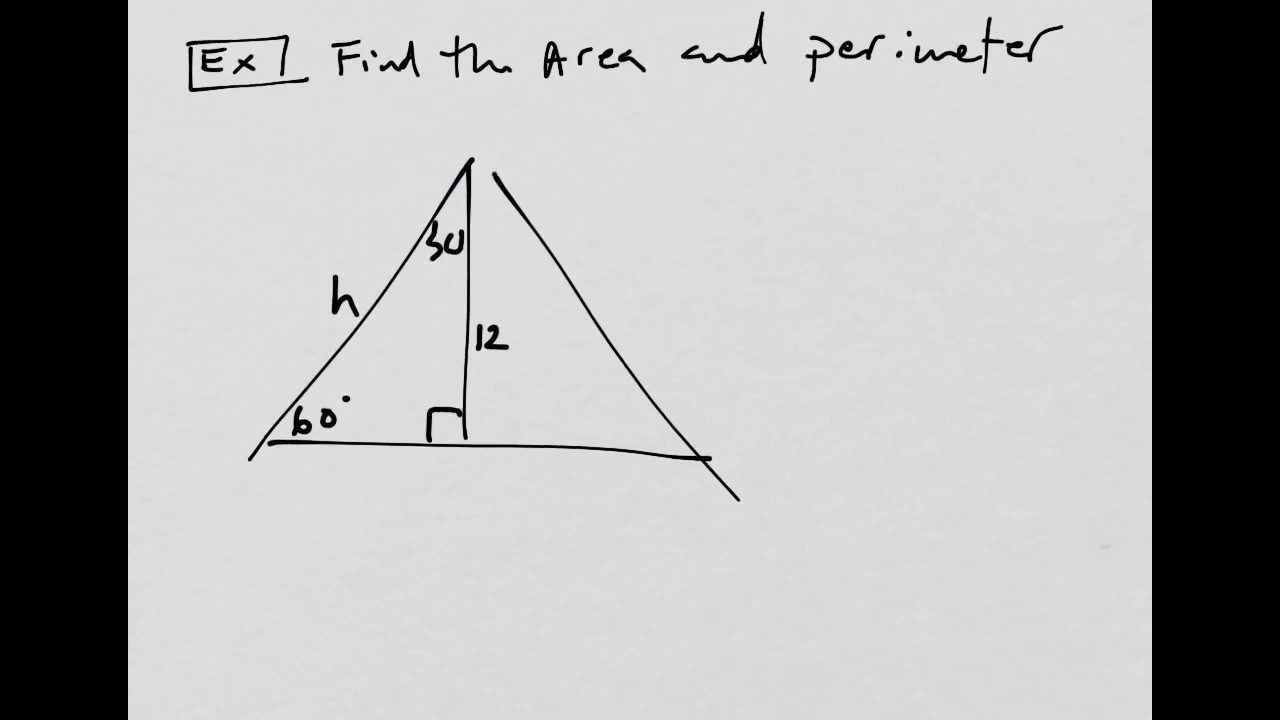 Ex Find the Area and perimeter
30
h
12
60°